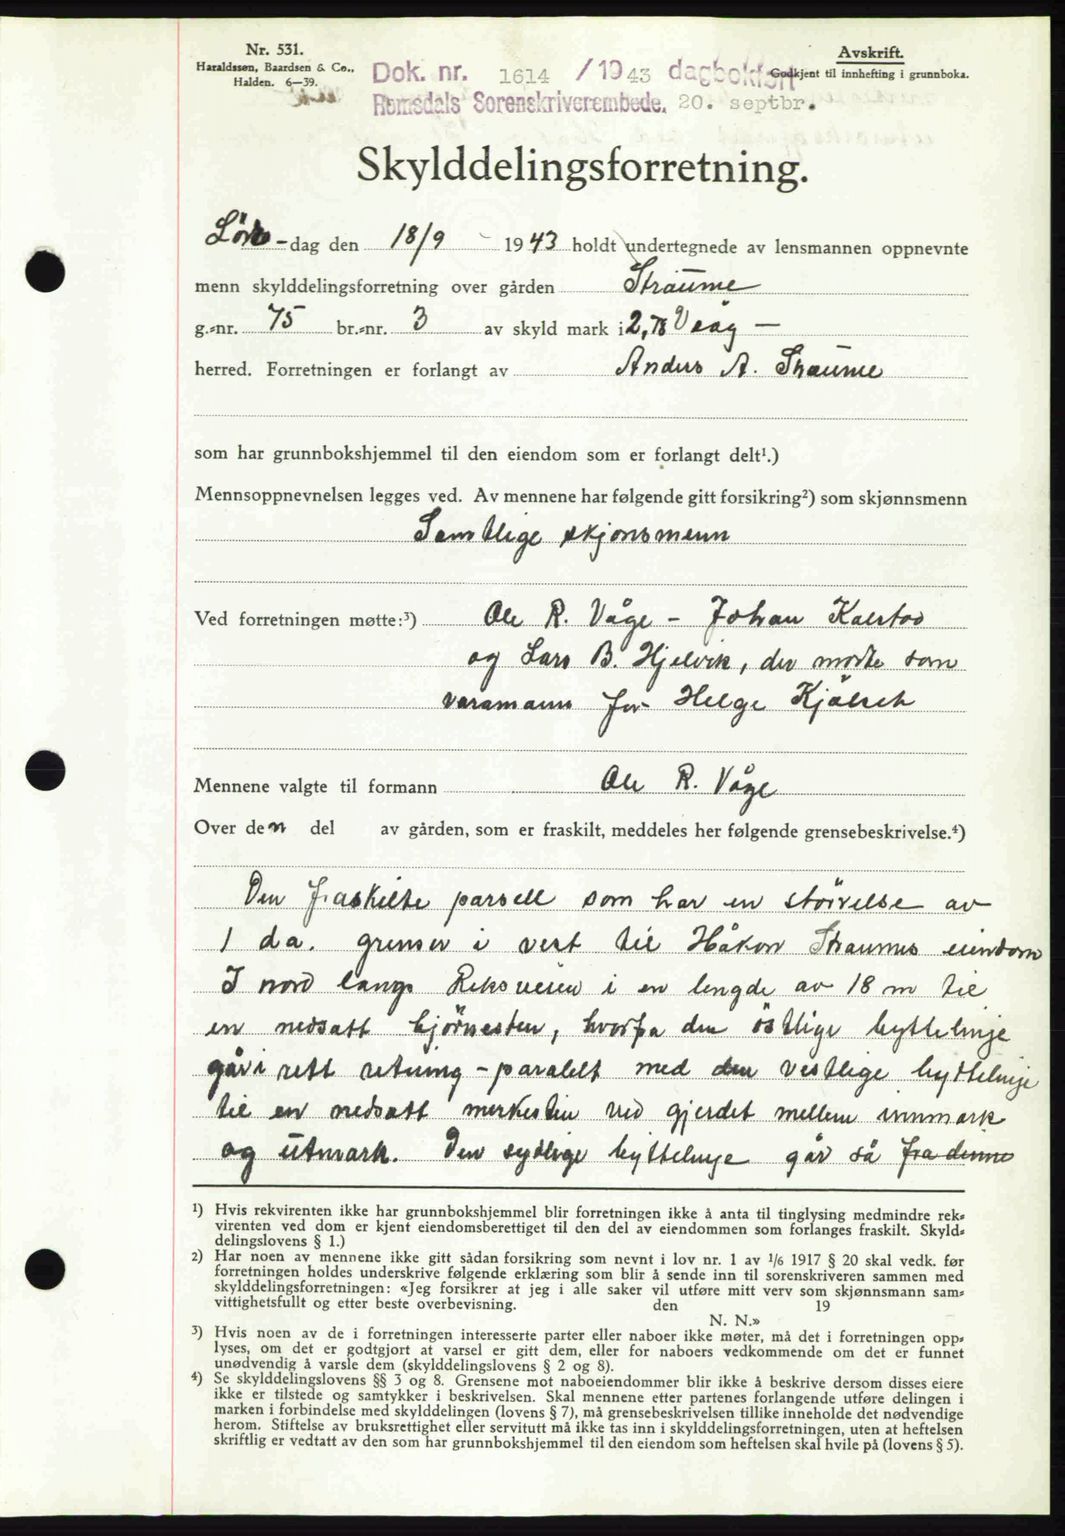 Nr. 531.
Haraldssen, Baardsen & Co.,
Halden. 6—39.
Avskrift.
Godkjent til innhefting i grunnboka.
Dok. nr. 1614 /1943 dagbokført
Romsdals Sorenskriverembede, 20. septbr.
Skylddelingsforretning.
Lør-dag den 18/9 1943 holdt undertegnede av lensmannen oppnevnte
menn skylddelingsforretning over gården Straume
g.-nr. 75 br.-nr. 3 av skyld mark i 2,78 Veøy —
herred. Forretningen er forlangt av Anders A. Straume
som har grunnbokshjemmel til den eiendom som er forlangt delt¹.)
Mennsoppnevnelsen legges ved. Av mennene har følgende gitt forsikring²) som skjønnsmenn
Samtlige skjønsmenn
Ved forretningen møtte:³) Ole R. Våge - Johan Kalstad
og Lars B. Hjelvik, der møtte som
varamann for Helge
Mennene valgte til formann Ole R. Våge
Over den del av gården, som er fraskilt, meddeles her følgende grensebeskrivelse.⁴)
Den fraskilte parsell som har en størrelse av
1 da. grenser i vest til Håkon Straumes eiendom
I nord langs Reksveien i en lengde av 18 m til
en nedsatt hjørnesten, hvorfra den östlige byttelinje
går i rett retning - paralelt med den vestlige byttelinje
til en nedsatt merkesten ved gjerdet mellem innmark
og utmark. Den sydlige byttelinje går så fra denne
¹) Hvis rekvirenten ikke har grunnbokshjemmel blir forretningen ikke å anta til tinglysing medmindre rek-
virenten ved dom er kjent eiendomsberettiget til den del av eiendommen som forlanges fraskilt. Skyld-
delingslovens § 1.)
²) Har noen av mennene ikke gitt sådan forsikring som nevnt i lov nr. 1 av ¹/₆ 1917 § 20 skal vedk. før
forretningen holdes underskrive følgende erklæring som blir å sende inn til sorenskriveren sammen med
skylddelingsforretningen: «Jeg forsikrer at jeg i alle saker vil utføre mitt verv som skjønnsmann sam-
vittighetsfullt og etter beste overbevisning. den 19
N. N.»
³) Hvis noen av de i forretningen interesserte parter eller naboer ikke møter, må det i forretningen opp-
lyses, om det er godtgjort at varsel er gitt dem, eller for naboers vedkommende om det er funnet
unødvendig å varsle dem (skylddelingslovens § 2 og 8).
⁴) Se skylddelingslovens §§ 3 og 8. Grensene mot naboeiendommer blir ikke å beskrive dersom disses eiere
ikke er tilstede og samtykker i beskrivelsen. Skal mennene etter partenes forlangende utføre delingen i
marken i forbindelse med skylddelingen (lovens § 7), må grensebeskrivelsen tillike inneholde det nødvendige
herom. Stiftelse av bruksrettighet eller servitutt må ikke tas inn i skylddelingsforretningen, uten at heftelsen
skriftlig er vedtatt av den som har grunnbokshjemmel til den eiendom som heftelsen skal hvile på (lovens § 5).